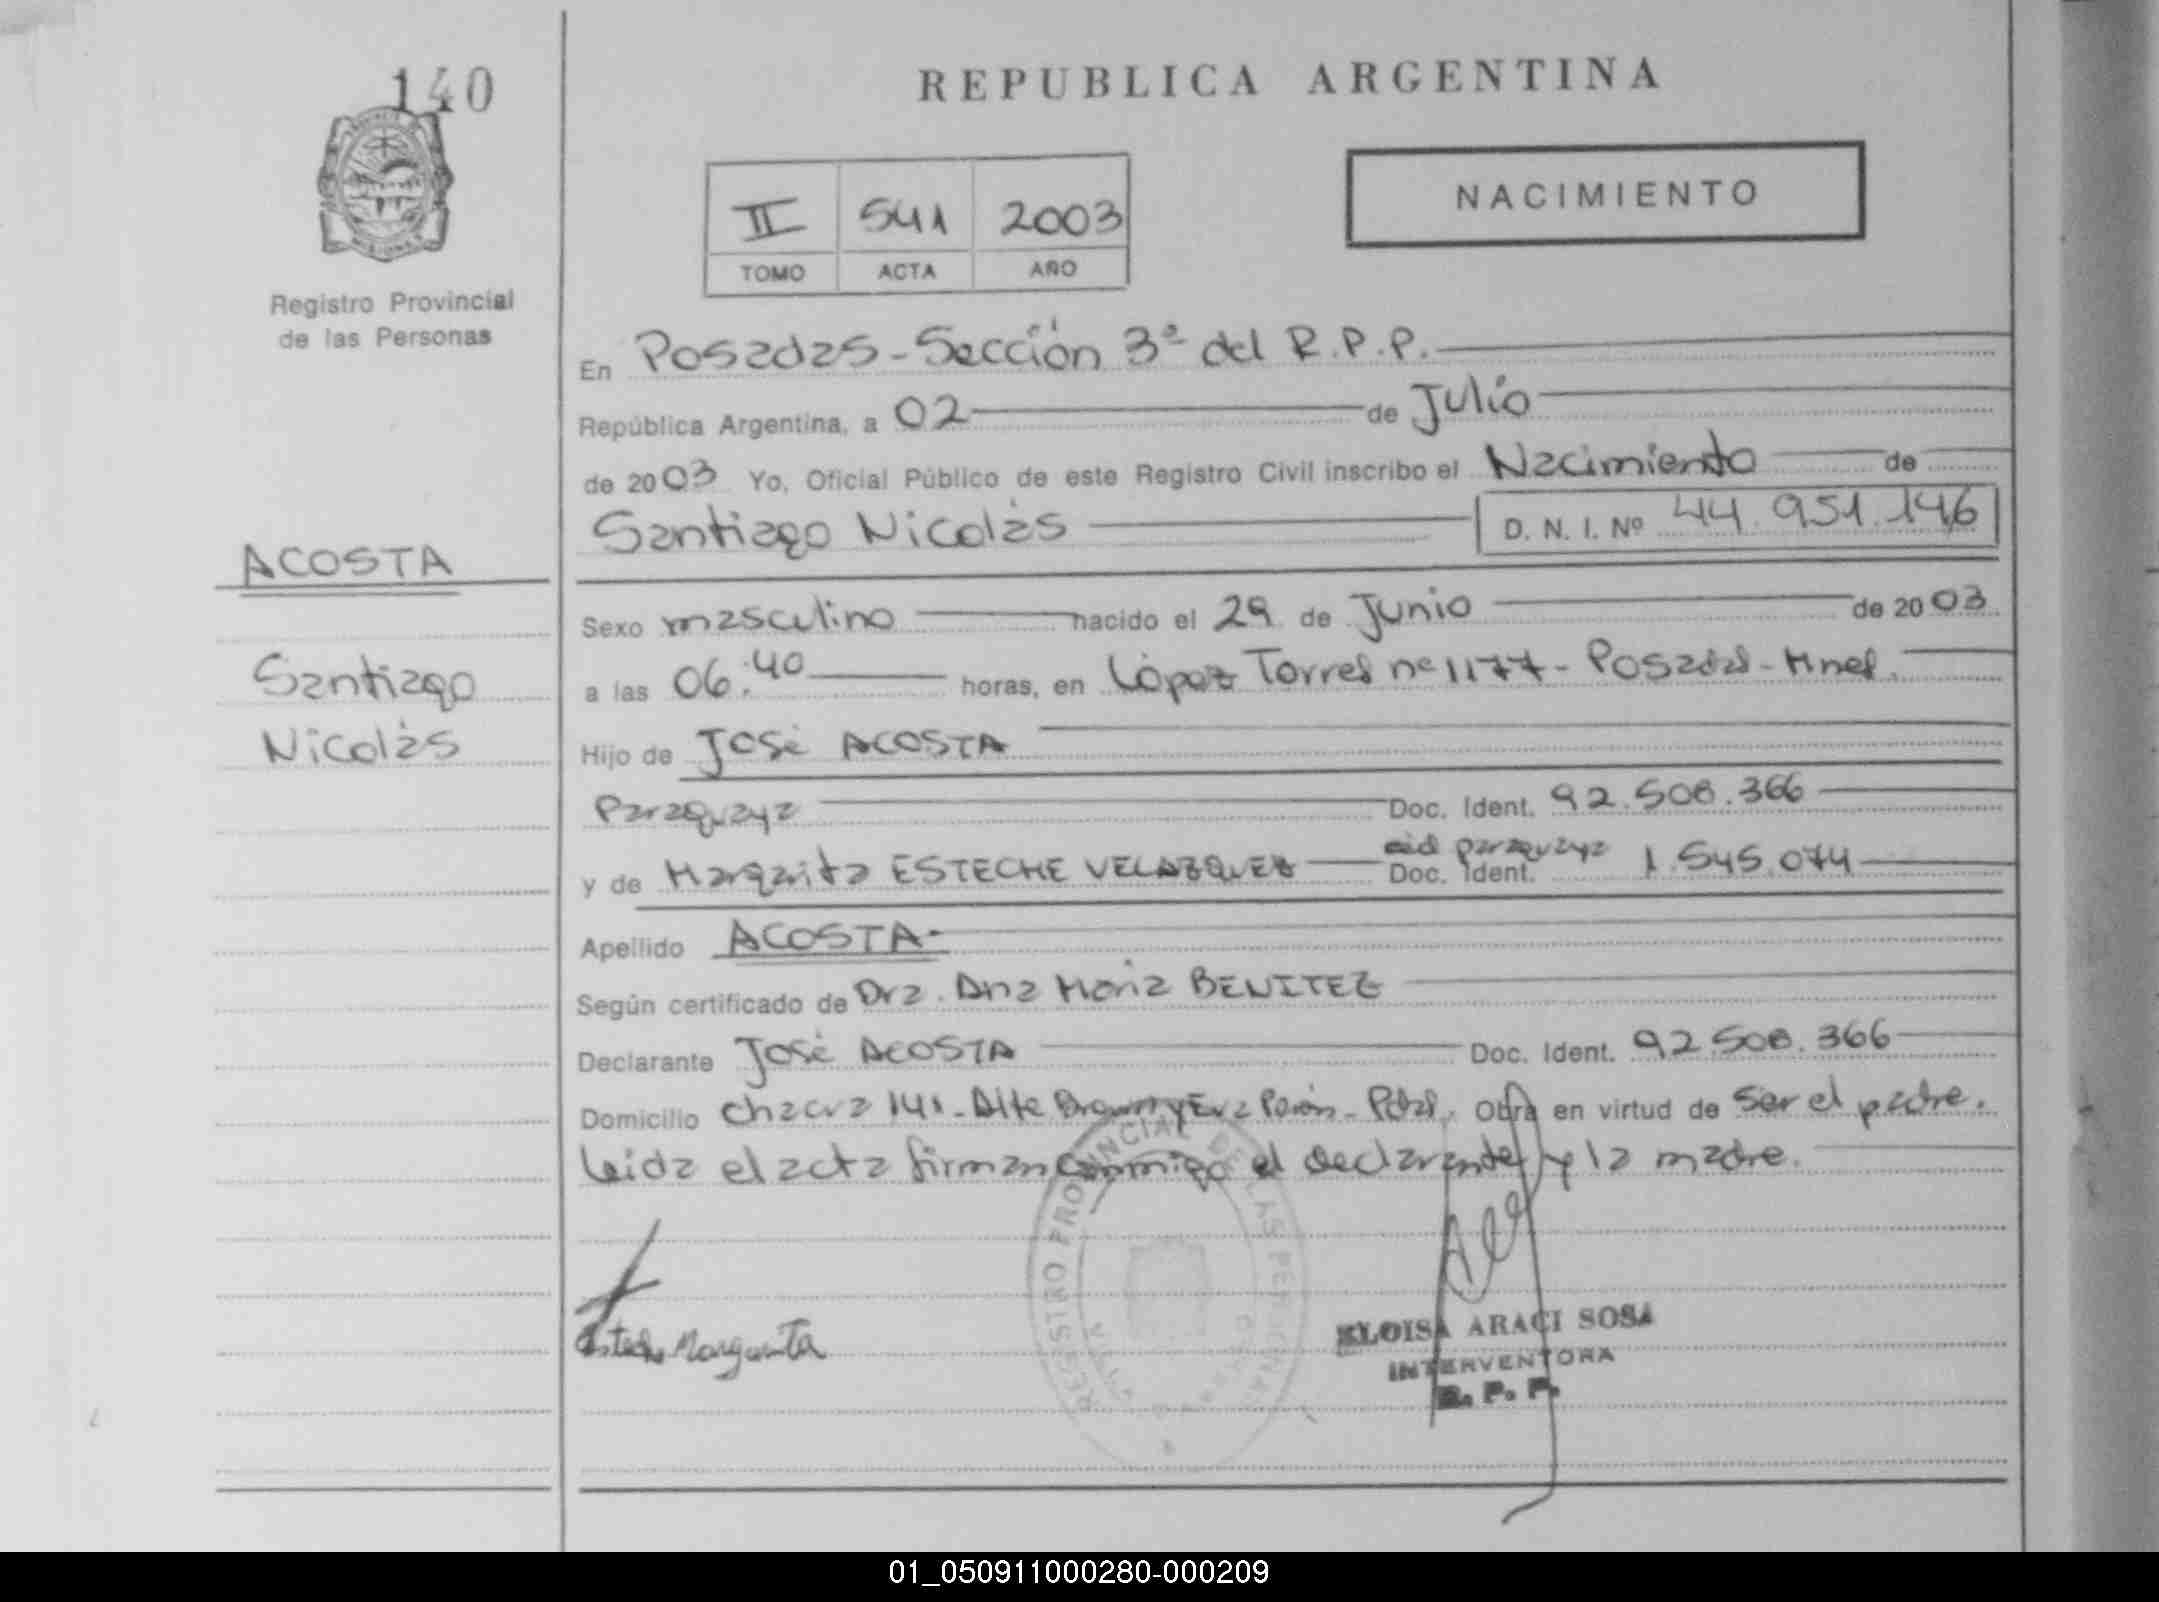 140
REPUBLICA ARGENTINA
NACIMIENTO
II 541 2003
TOMO ACTA AÑO
Registro Provincial
de las Personas
En Posadas - Sección 3ª del R.P.P.
República Argentina, a 02 de Julio
de 2003 Yo, Oficial Público de este Registro Civil inscribo el Nacimiento de
Santiago Nicolás D. N. I. Nº 44.951.146
ACOSTA
Sexo masculino nacido el 29 de Junio de 2003
Santiago
a las 06:40 horas, en López Torres nº 1177 - Posadas - Mnes.
Nicolás
Hijo de José ACOSTA
Paraguaya Doc. Ident. 92.508.366
y de Margarita ESTECHE VELAZQUEZ Doc. Ident. ced paraguaya 1.545.074
Apellido ACOSTA
Según certificado de Dra. Ana María BENITEZ
Declarante José ACOSTA Doc. Ident. 92.508.366
Domicilio Chacra 141 - Alte Brown y Eva Perón - Pdas. Obra en virtud de ser el padre.
Leida el acta firman conmigo el declarante y la madre.
Esteche Margarita
REGISTRO PROVINCIAL DE LAS PERSONAS
ELOISA ARACI SOSA
INTERVENTORA
R. P. P.
01_050911000280-000209